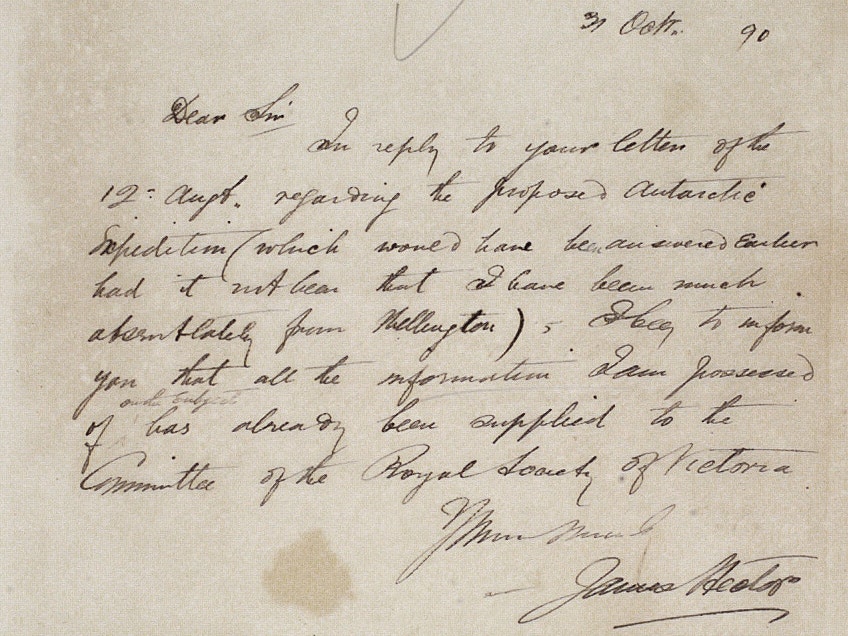 31 Octr. 90
Dear Sir
In reply to your letter of the
12 = Augt. regarding the proposed Antarctic
Expedition (which would have been answered Earlier
had it not been that I have been much
absent lately from Wellington), I beg to inform
you that all the information I am possessed
on the Subject
of has already been supplied to the
Committee of the Royal Society of Victoria
Yours
James Hector